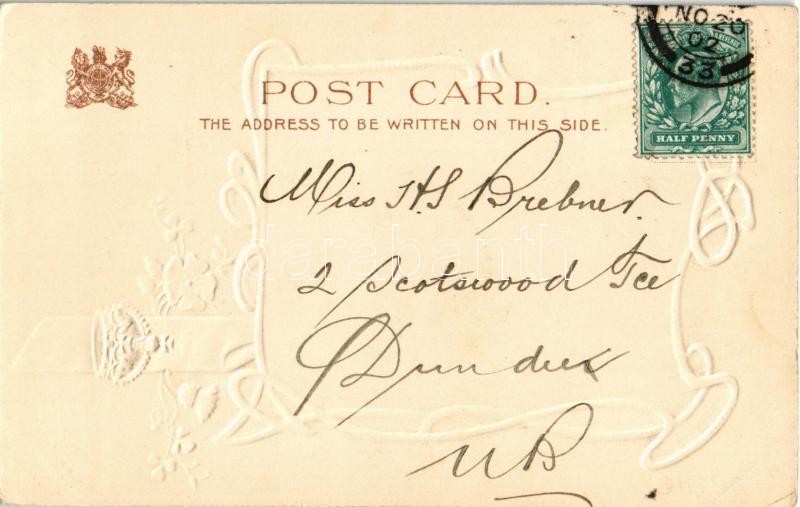 NO 20
02
33
HALF PENNY
POST CARD.
THE ADDRESS TO BE WRITTEN ON THIS SIDE.
Miss H S Brebner.
darabanth
2 Scotswood Tce
Dundee
N B